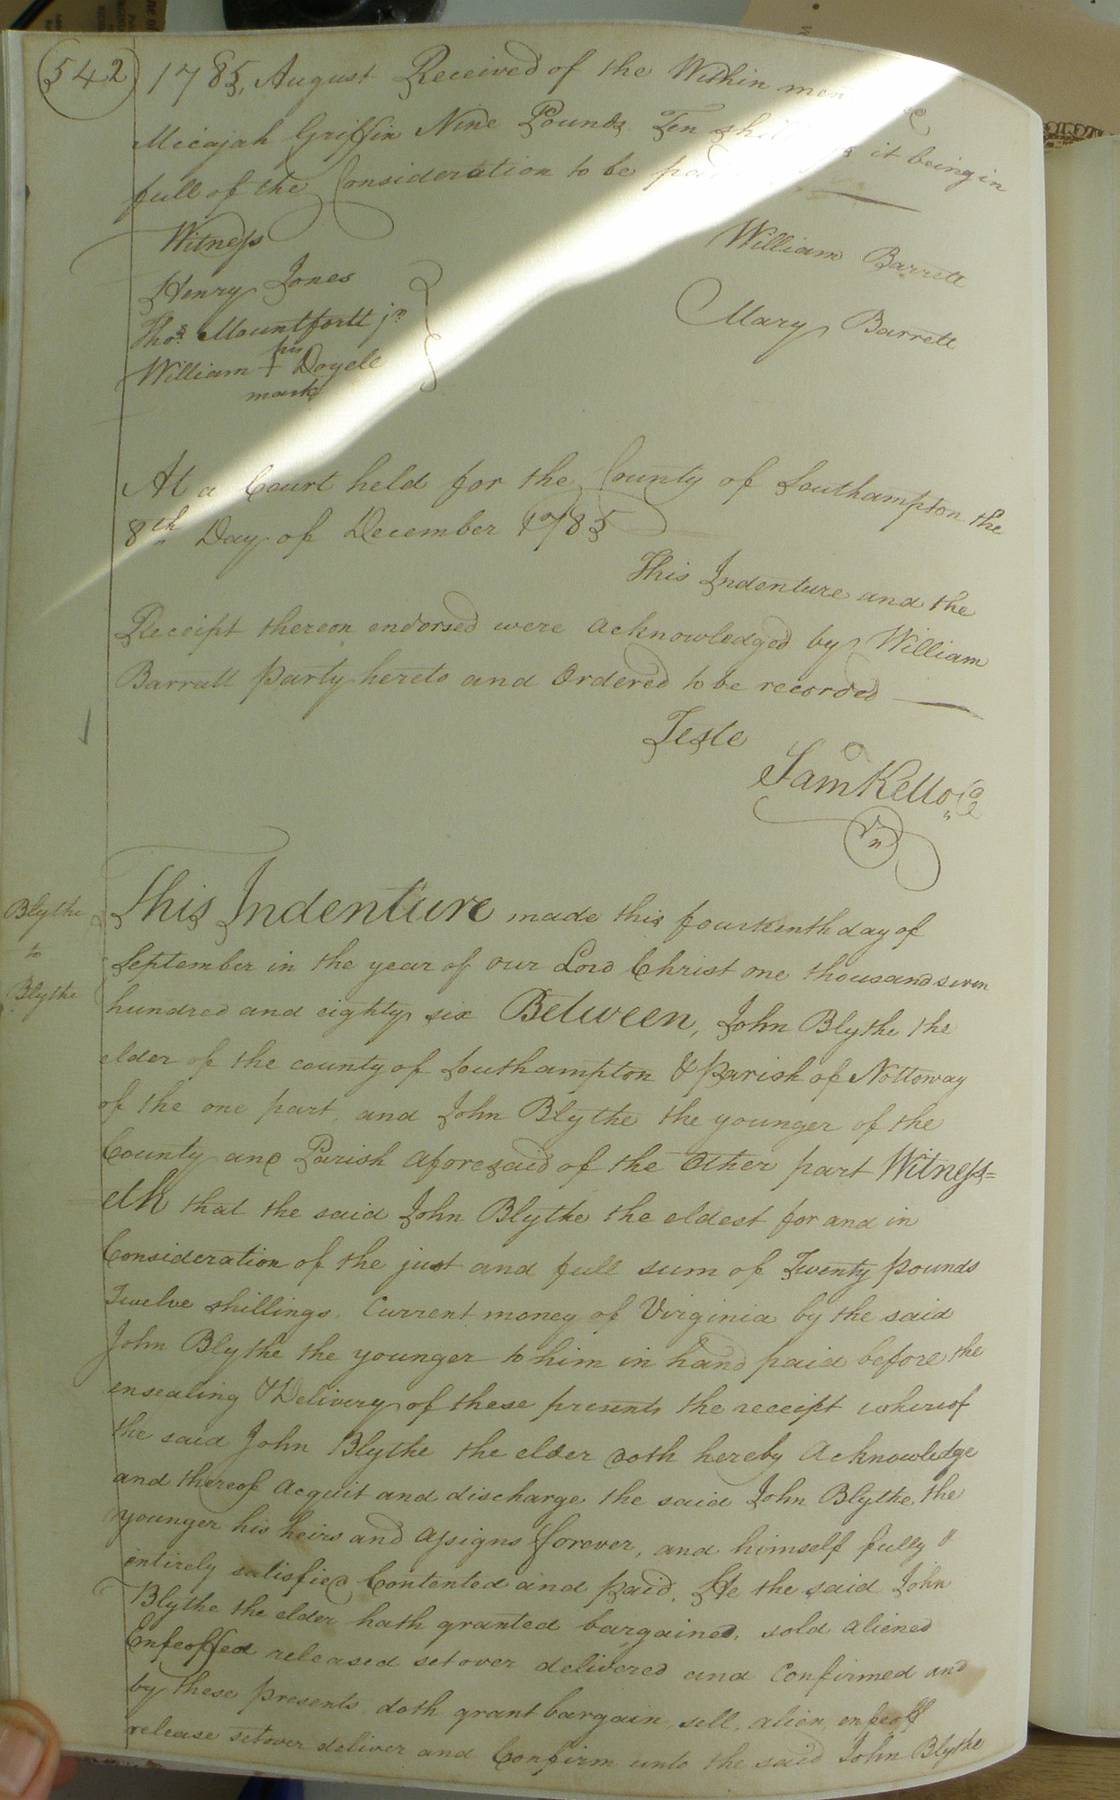 542
1785, August Received of the Within men
Micajah Griffin Nine Pounds Ten shill it being in
full of the Consideration to be paid
Witness
Henry Jones
Thos. Mountfortt jr
William + Doyell
his
mark
William Barrett
Mary Barrett
At a Court held for the County of Southampton the
8th Day of December 1785
This Indenture and the
Receipt thereon endorsed were acknowledged by William
Barratt party hereto and Ordered to be recorded
Teste
Sam Kello
Blythe
to
Blythe
This Indenture made this fourteenth day of
September in the year of our Lord Christ one thousand seven
hundred and eighty six Between, John Blythe the
elder of the county of Southampton & Parish of Nottoway
of the one part and John Blythe the younger of the
County and Parish aforesaid of the Other part Witness=
eth that the said John Blythe the eldest for and in
Consideration of the just and full sum of Twenty pounds
Twelve shillings Current money of Virginia by the said
John Blythe the younger to him in hand paid before the
ensealing & Delivery of these presents the receipt whereof
the said John Blythe the elder doth hereby Acknowledge
and thereof Acquit and discharge the said John Blythe, the
younger his heirs and assigns forever, and himself fully
entirely satisfied Contented and paid. He the said John
Blythe the elder hath granted bargained, sold aliened
Enfeoffed released setover delivered and Confirmed and
by these presents doth grant bargain sell, alien, enfeoff
release setover deliver and Confirm unto the said John Blythe